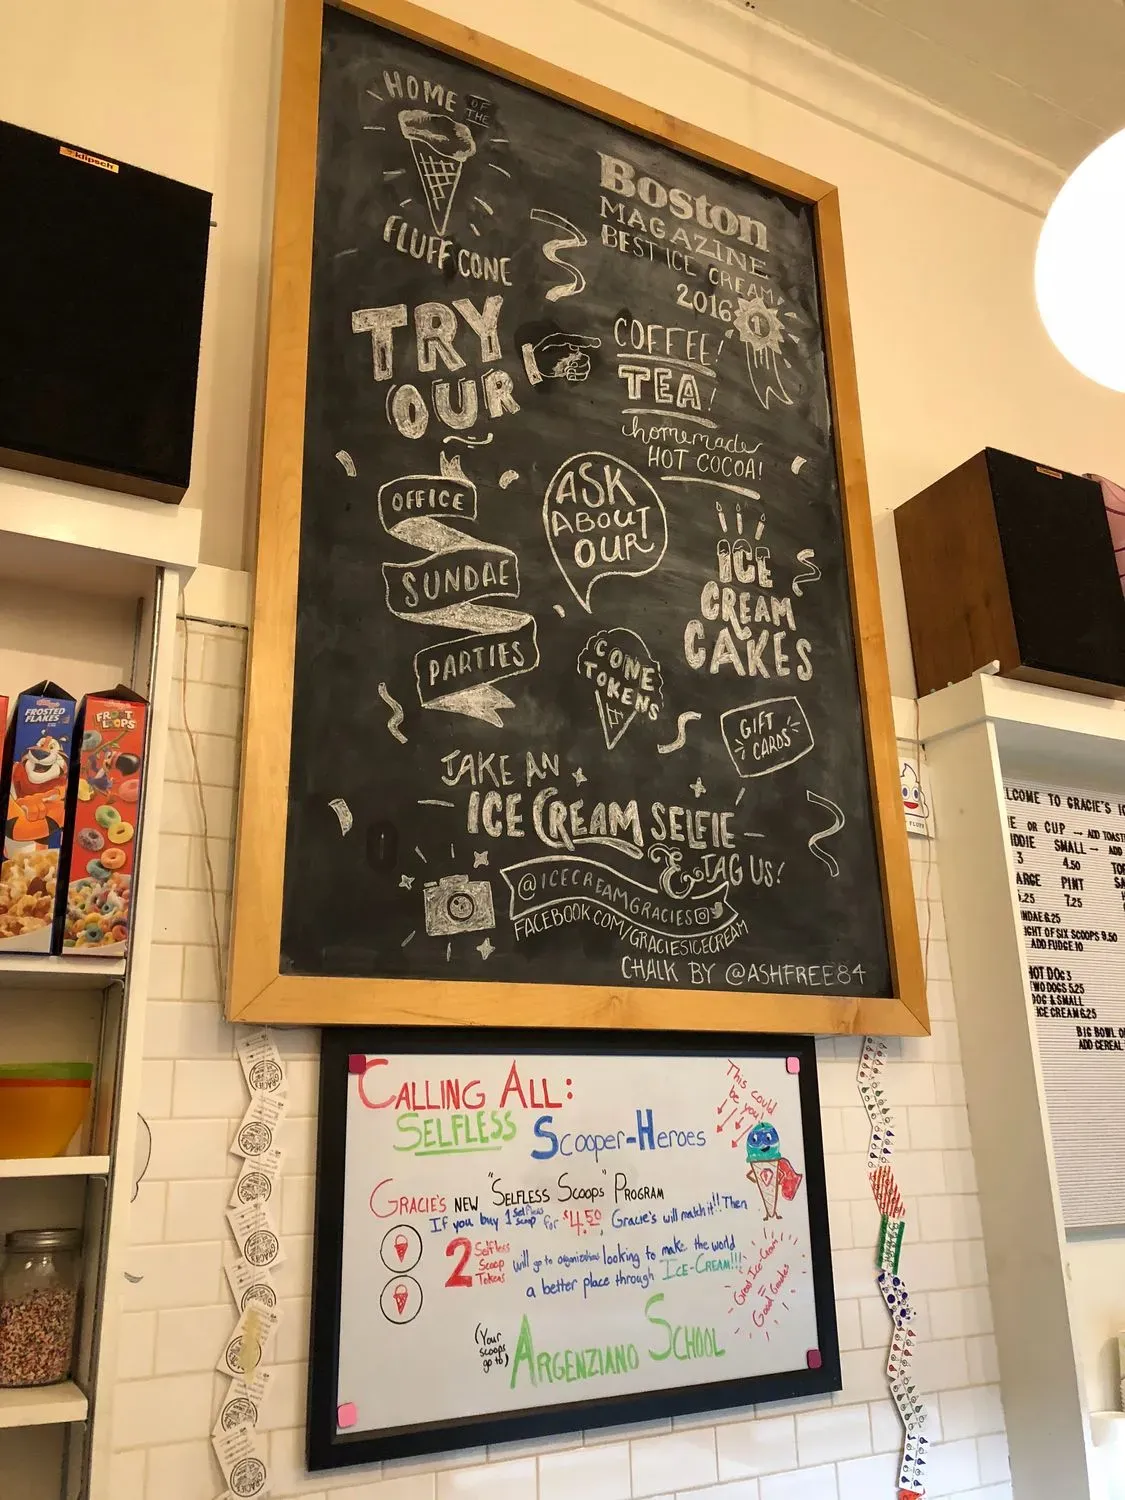 klipsch
HOME OF THE
FLUFF CONE
Boston
MAGAZINE
BEST ICE CREAM
2016
1
TRY
OUR
COFFEE!
TEA!
homemade
HOT COCOA!
OFFICE
SUNDAE
PARTIES
ASK
ABOUT
OUR
ICE
CREAM
CAKES
CONE
TOKENS
GIFT
CARDS
TAKE AN
ICE CREAM SELFIE
& TAG US!
@ICECREAMGRACIES
FACEBOOK.COM/GRACIESICECREAM
CHALK BY @ASHFREE84
FROSTED
FLAKES
FROOT
LOOPS
CALLING ALL:
SELFLESS SCOOPER-HEROES
This could
be you!
GRACIE'S NEW "SELFLESS SCOOPS" PROGRAM
If you buy 1 selfless scoop for $4.50, Gracie's will match it!! Then
2 Selfless Scoop Tokens will go to organizations looking to make the world
a better place through ICE-CREAM!!!
Great Ice-Cream
=
Good Grades
(Your
scoops
go to)
ARGENZIANO SCHOOL
FLUFF
LCOME TO GRACIE'S IC
E OR CUP → ADD TOAST
IDDIE SMALL → ADD
3 4.50 TO
ARGE PINT SA
.25 7.25
NDAE 6.25
IGHT OF SIX SCOOPS 9.50
ADD FUDGE 10
HOT DOG 3
TWO DOGS 5.25
DOG & SMALL
ICE CREAM 6.25
BIG BOWL O
ADD CEREAL